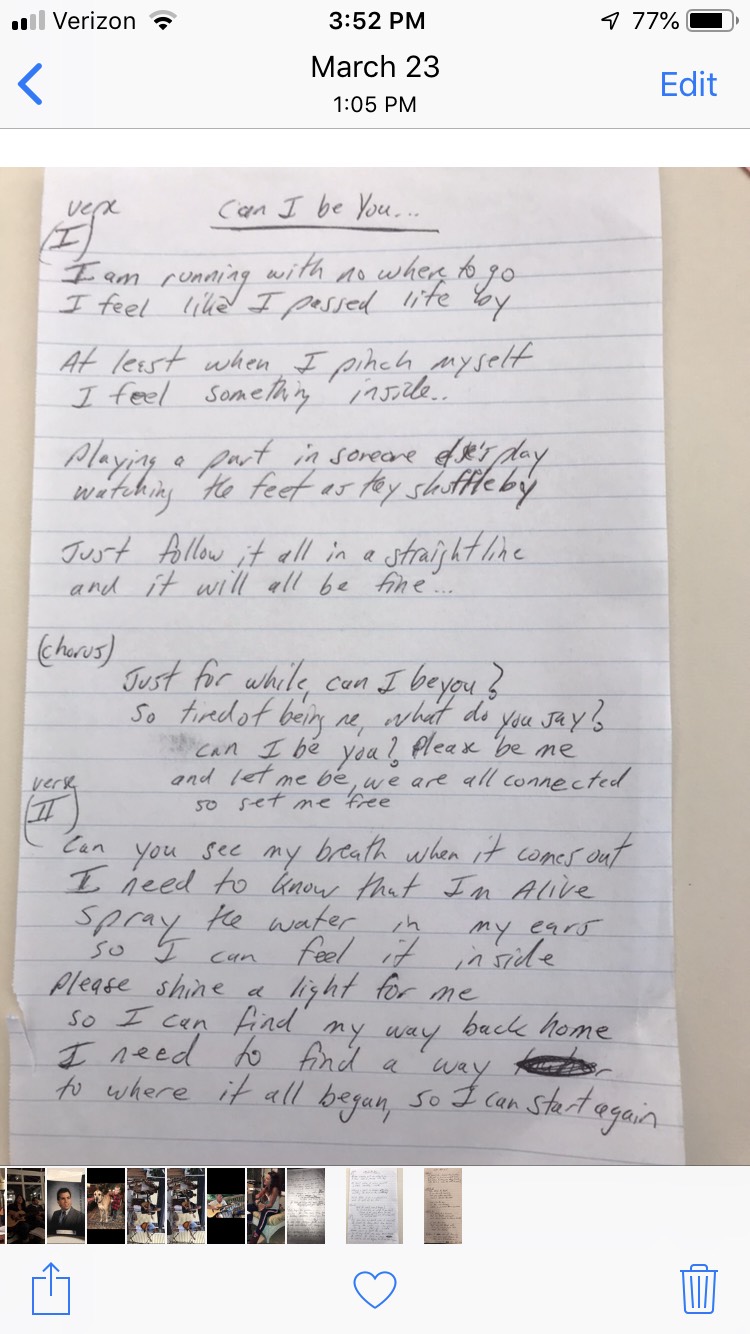 Verizon 3:52 PM 77%
March 23
1:05 PM
Edit
verse
(I)
Can I be You...
I am running with no where to go
I feel like I passed life by
At least when I pinch myself
I feel something inside..
Playing a part in someone else's play
watching the feet as they shuffle by
Just follow it all in a straight line
and it will all be fine...
(chorus)
Just for while, can I be you?
So tired of being me, what do you say?
can I be you? Please be me
and let me be, we are all connected
so set me free
verse
(II)
Can you see my breath when it comes out
I need to know that Im Alive
Spray the water in my ears
so I can feel it inside
Please shine a light for me
so I can find my way back home
I need to find a way
to where it all began, so I can start again